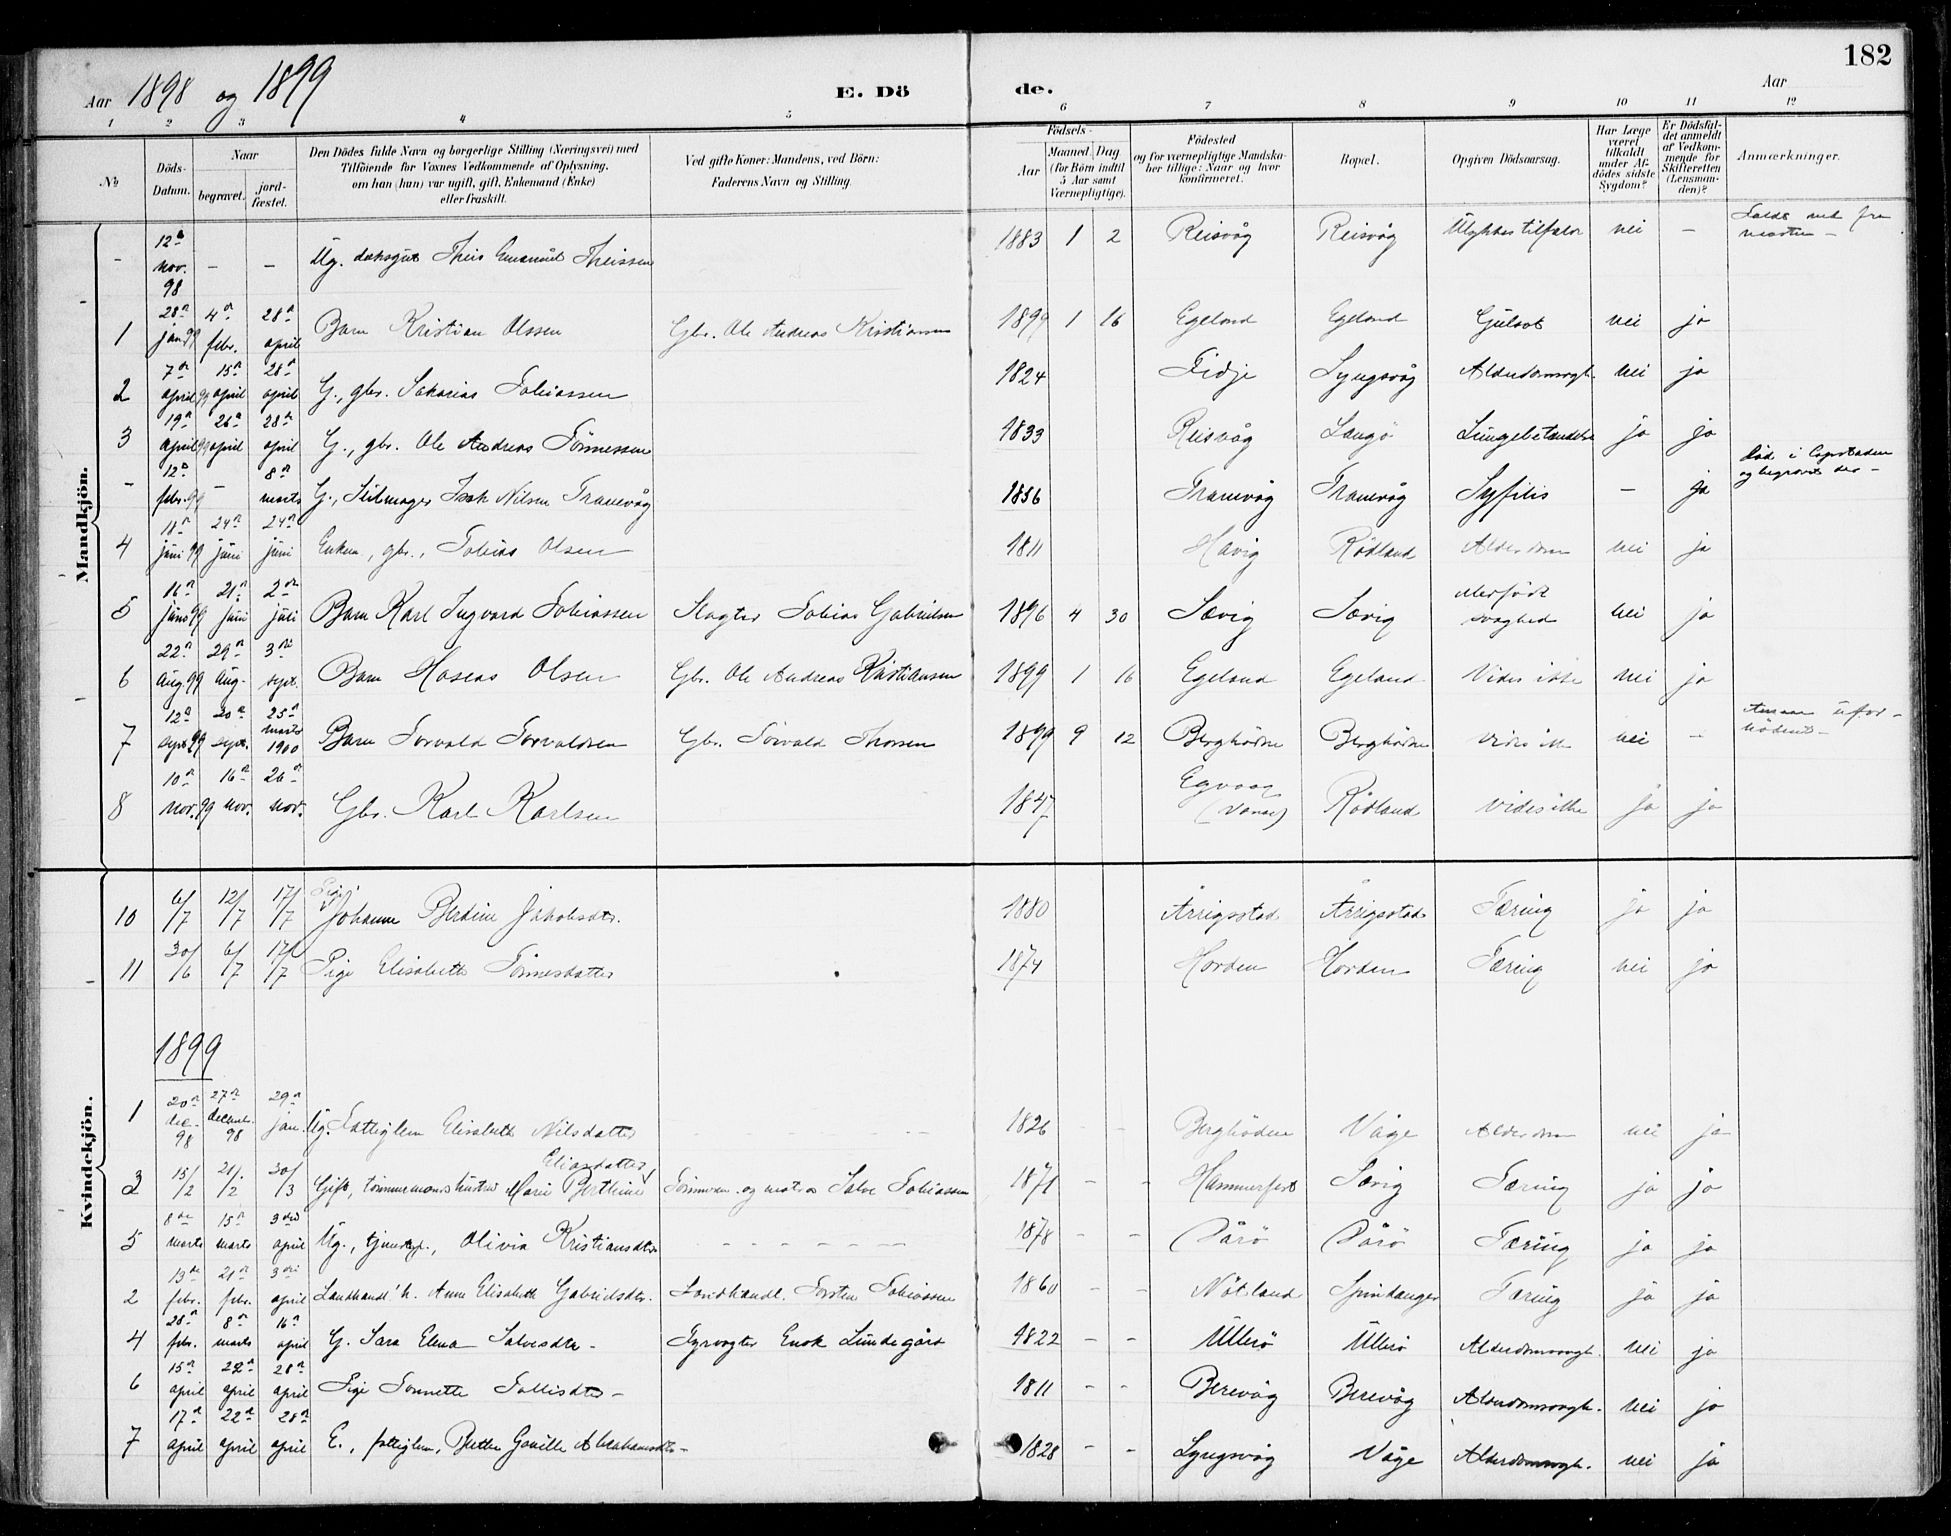 182
Aar 1898 og 1899
E. Dö de.
Aar
1 2 3 4 5 6 7 8 9 10 11 12
No
Döds-Datum.
Naar
begravet.
jord-fæstet.
Den Dödes fulde Navn og borgerlige Stilling (Næringsvei) med
Tilföiende for Voxnes Vedkommende af Oplysning,
om han (hun) var ugift, gift, Enkemand (Enke)
eller fraskilt.
Ved gifte Koner: Mandens, ved Börn:
Faderens Navn og Stilling.
Födsels-
Aar
Maaned. Dag
(for Börn indtil
5 Aar samt
Værnepligtige).
Födested
og for værnepligtige Mandska-
ber tillige: Naar og hvor
konfirmeret.
Bopæl.
Opgiven Dödsaarsag.
Har Læge
været
tilkaldt
under Af-
dödes sidste
Sygdom?
Er Dödsfal-
det anmeldt
af Vedkom-
mende for
Skifteretten
(Lensman-
den)?
Anmærkninger.
Mandkjön.
- 12te nov. 98 - - Ug. Theis Emanuel Theissen 1883 1 2 Reisvåg Reisvåg Ulykkestilfælde nei - Faldt ned fra masten -
1 28de jan 99 4de febr. 28de april Barn Kristian Olssen Gbr. Ole Andreas Kristiansen 1899 1 16 Egeland Egeland Gulsot nei ja
2 7de april 99 15de april 28de april G., gbr. Sakarias Tobiassen 1824 Fidje Lyngsvåg Alderdomssvagh. nei ja
3 19de april 99 26de april 28de april G., gbr. Ole Andreas Tönnessen 1833 Reisvåg Langö Lungebetændelse ja ja
- 12te febr. 99 - 8de marts G., Seilmager Isak Nilsen Tranevåg 1856 Tranevåg Tranevåg Syfilis - ja Död i Capstaden og begravet der -
4 18de juni 99 24de juni 24de juni Enkem., gbr., Tobias Olsen 1811 Havig Rödland Alderdom nei ja
5 16de juni 99 21de juni 2den juli Barn Karl Ingvard Tobiassen Slagter Tobias Gabrielsen 1896 4 30 Sævig Sævig Medfödt svaghed nei ja
6 22de Aug. 99 29de Aug. 3die sept. Barn Hoseas Olsen Gbr. Ole Andreas Kristiansen 1899 1 16 Egeland Egeland Vides ikke nei ja
7 12te sept 99 20de sept. 25de marts 1900 Barn Torvald Torvaldsen Gbr. Torvald Thorsen 1899 9 12 Berghödne Berghödne Vides ikke nei -
8 10de nov. 99 16de nov. 26de nov. Gbr. Karl Karlsen 1847 Egvaag (Vanse) Rödland vides ikke ja ja
Kvindekjön.
10 6/7 12/7 17/7 Pige Johanne Berdine Jakobsdtr. 1880 Årrigsstad Årrigsstad Tæring ja ja
11 30/6 6/7 17/7 Pige Elisabeth Tönnesdatter 1874 Horden Horden Tæring nei ja
1899
1 20de dec. 98 27de decemb. 98 29de jan. Ug. Fattiglem Elisabeth Nilsdatter 1826 - Berghödne Våge Alderdom nei ja
3 15/2 21/2 30/3 Gift, tömmermandshustru Marie Berthine Eliasdatter Tömmerm. og matros Salve Tobiassen 1871 - - Hammerfest Sævig Tæring ja ja
5 8de marts 15de marts 3die april Ug., tjenestep., Olivia Kristiansdtr 1878 - - Dårö Dårö Tæring ja ja
2 13de febr. 21de febr. 3die april Landhandl. h. Anne Elisabeth Gabrielsdtr. Landhandl. Torsten Tobiassen 1860 - - Nötland Spindanger Tæring ja ja
4 28de febr. 8de marts 16de april G. Sara Elena Salvesdtr - Fyrvogter Enok Lundegård 1822 - - Ullerö Ullerö Alderdomssvagh. nei ja
6 15de april 22de april 28de april Pige Tonnette Tollisdtr - 1811 - - Berevåg Berevåg Alderdomssvagh. nei ja
7 17de april 22de april 28de april E., fattiglem, Berthe Gonille Abrahamsdtr - 1828 - - Lyngsvåg Våge Alderdomssvagh. nei ja